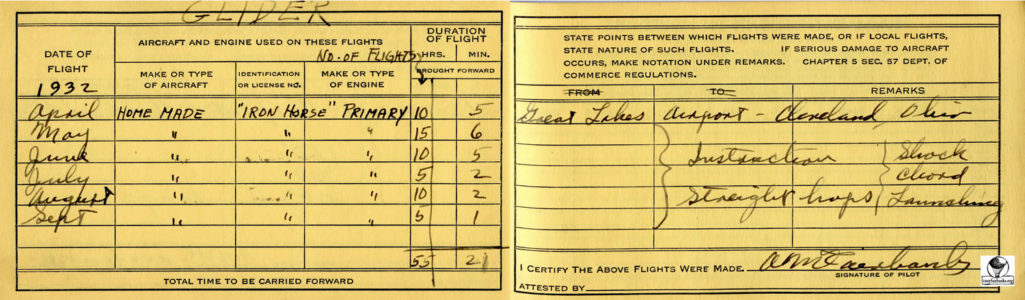 GLIDER
DATE OF FLIGHT 1932
AIRCRAFT AND ENGINE USED ON THESE FLIGHTS
NO. OF FLIGHTS
DURATION OF FLIGHT
HRS. MIN.
BROUGHT FORWARD
MAKE OR TYPE OF AIRCRAFT
IDENTIFICATION OR LICENSE NO.
MAKE OR TYPE OF ENGINE
April HOME MADE "IRON HORSE" PRIMARY 10 5
May " " " 15 6
June " " " 10 5
July " " " 5 2
August " " " 10 2
Sept " " " 5 1
55 21
TOTAL TIME TO BE CARRIED FORWARD
STATE POINTS BETWEEN WHICH FLIGHTS WERE MADE, OR IF LOCAL FLIGHTS,
STATE NATURE OF SUCH FLIGHTS. IF SERIOUS DAMAGE TO AIRCRAFT
OCCURS, MAKE NOTATION UNDER REMARKS. CHAPTER 5 SEC. 57 DEPT. OF
COMMERCE REGULATIONS.
FROM TO REMARKS
Great Lakes Airport - Cleveland, Ohio
Instruction Shock
Chord
Straight hops Launching
I CERTIFY THE ABOVE FLIGHTS WERE MADE
SIGNATURE OF PILOT
ATTESTED BY